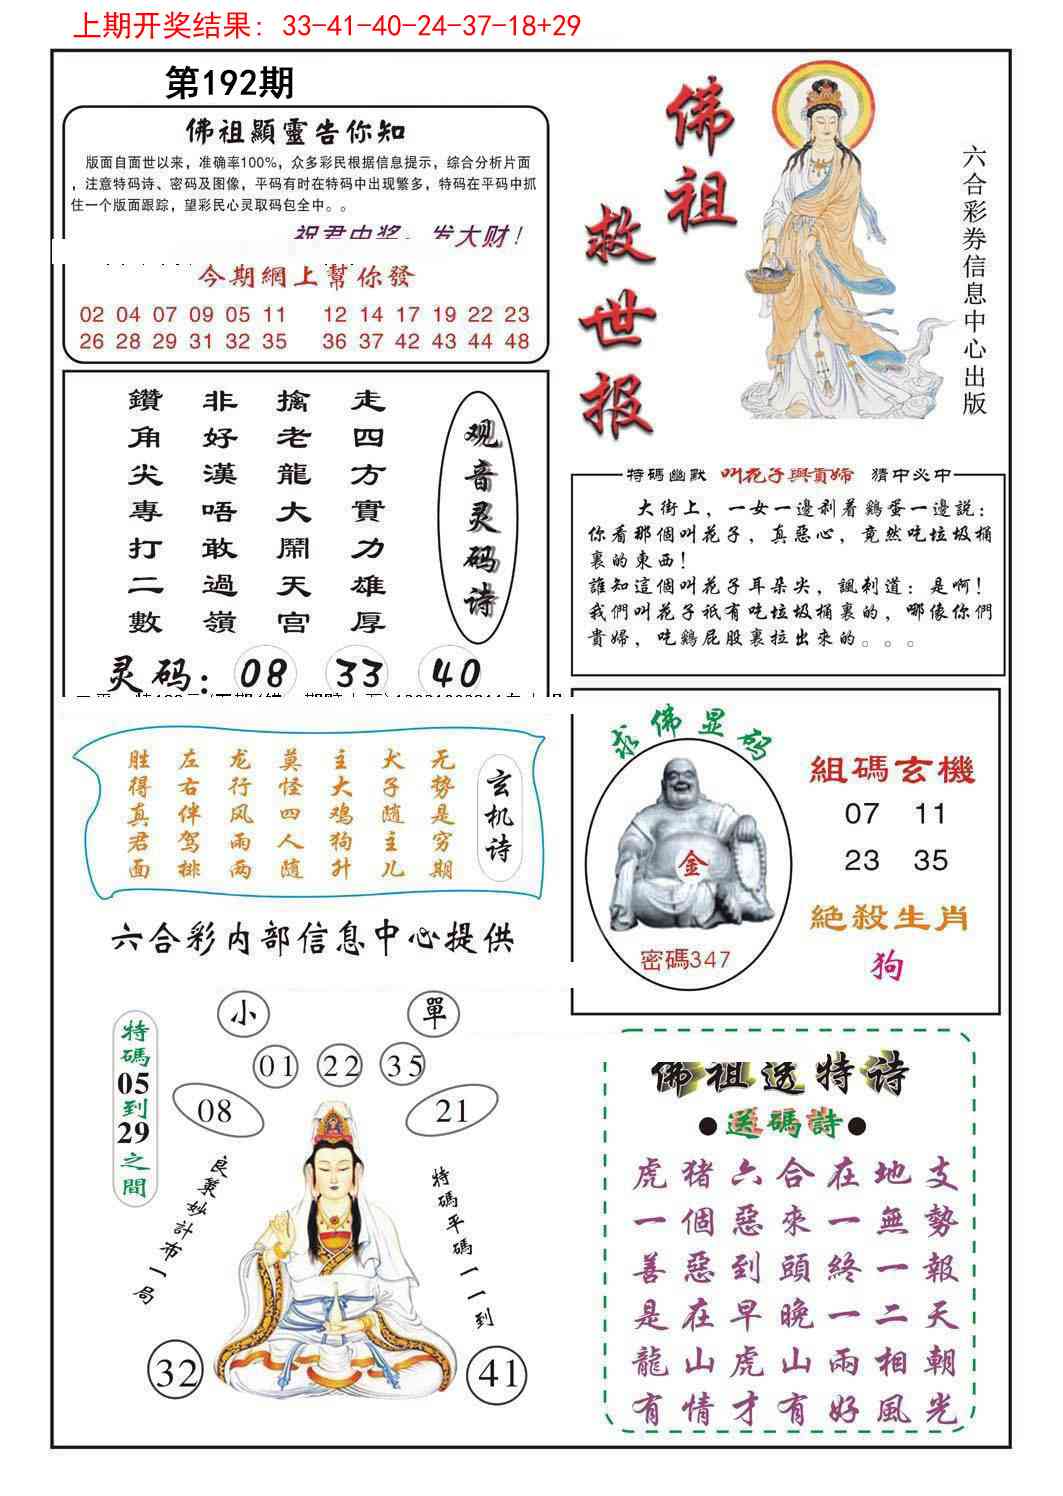 上期开奖结果: 33-41-40-24-37-18+29
第192期
佛祖顯靈告你知
版面自面世以来，准确率100%，众多彩民根据信息提示，综合分析片面
，注意特码诗、密码及图像，平码有时在特码中出现繁多，特码在平码中抓
住一个版面跟踪，望彩民心灵取码包全中。。
祝君中奖，发大财！
今期網上幫你發
02 04 07 09 05 11 12 14 17 19 22 23
26 28 29 31 32 35 36 37 42 43 44 48
佛祖
救世报
六合彩券信息中心出版
走四方實力雄厚
擒老龍大鬧天宫
非好漢唔敢過嶺
鑽角尖專打二數
观音灵码诗
灵码: 08 33 40
特碼幽默 叫花子與貴婦 猜中必中
大街上，一女一邊剥着鷄蛋一邊説：
你看那個叫花子，真惡心，竟然吃垃圾桶
裏的東西！
誰知這個叫花子耳朵尖，諷刺道：是啊！
我們叫花子祇有吃垃圾桶裏的，哪像你們
貴婦，吃鷄屁股裏拉出來的。。。
玄机诗
无势是穷期
犬子随主儿
主大鸡狗升
莫怪四人随
龙行风雨两
左右伴驾排
胜得真君面
六合彩内部信息中心提供
求佛显码
金
密碼347
組碼玄機
07 11
23 35
絕殺生肖
狗
小 單
01 22 35
08 21
特碼05到29之間
良策妙計布一局
特碼平碼一一到
32 41
佛祖透特诗
●送碼詩●
虎猪六合在地支
一個惡來一無勢
善惡到頭終一報
是在早晚一二天
龍山虎山兩相朝
有情才有好風光